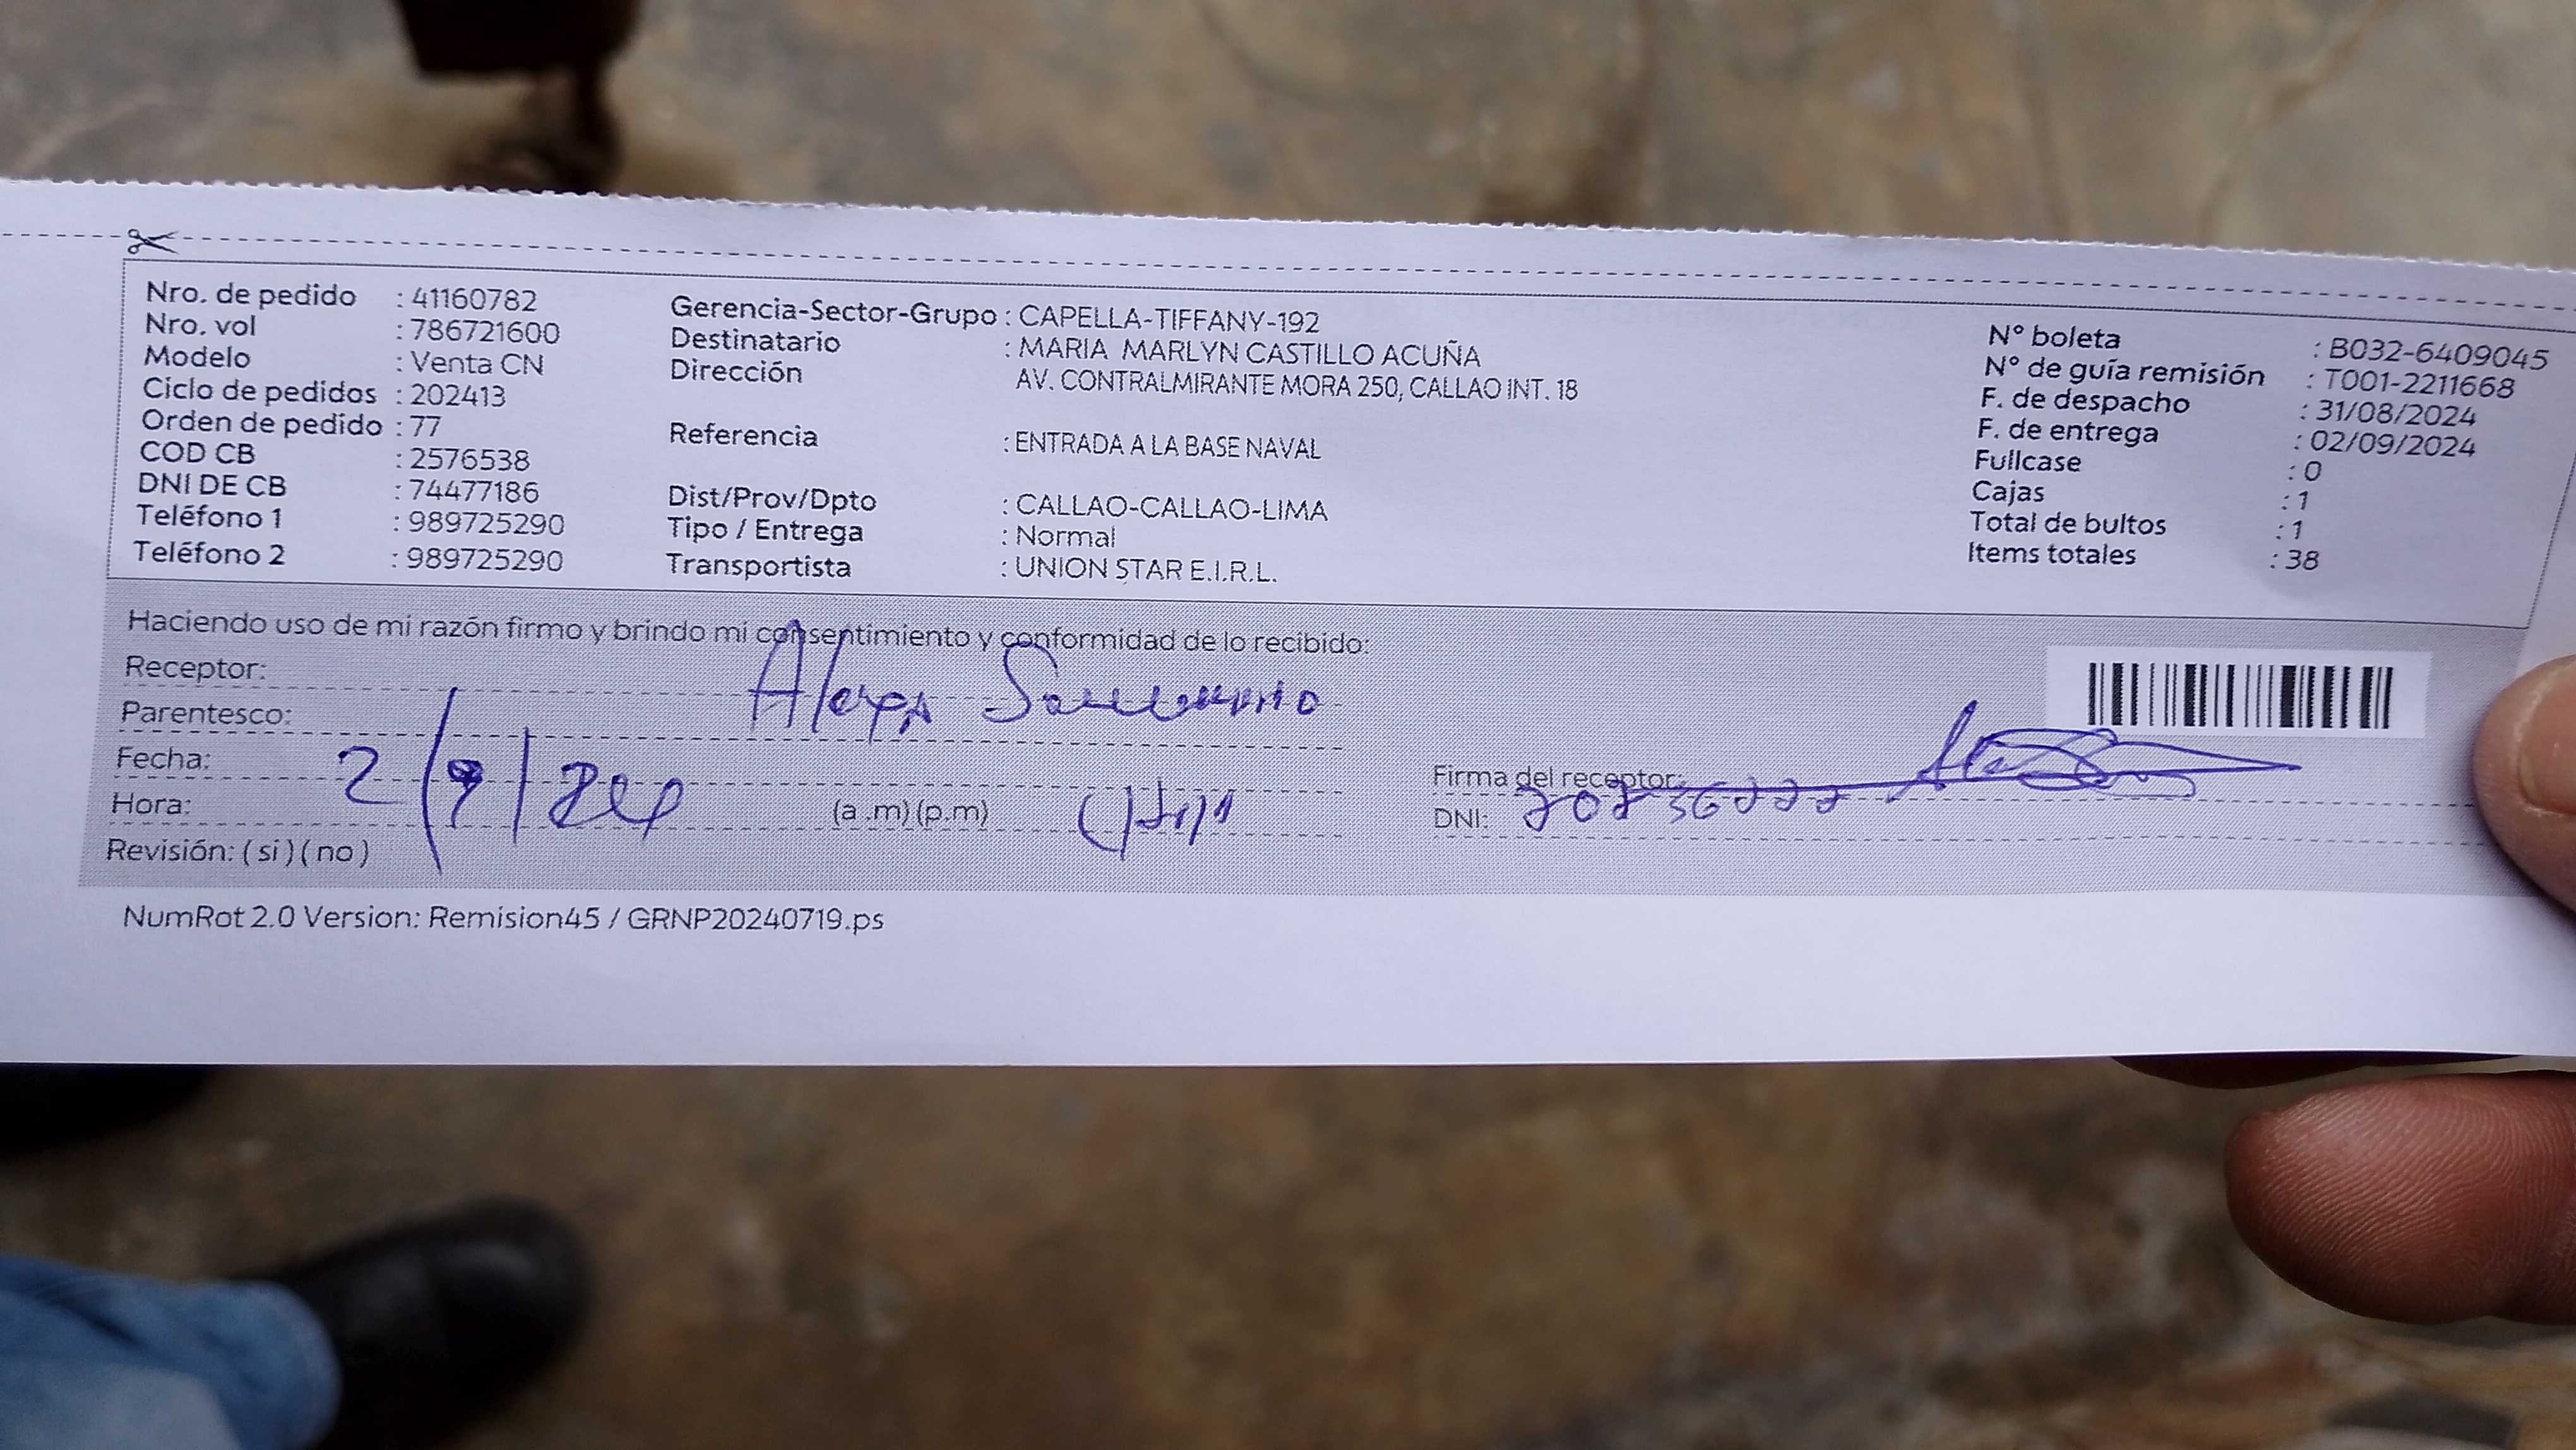 Nro. de pedido : 41160782
Nro. vol : 786721600
Modelo : Venta CN
Ciclo de pedidos : 202413
Orden de pedido : 77
COD CB : 2576538
DNI DE CB : 74477186
Teléfono 1 : 989725290
Teléfono 2 : 989725290
Gerencia-Sector-Grupo : CAPELLA-TIFFANY-192
Destinatario : MARIA MARLYN CASTILLO ACUÑA
Dirección AV. CONTRALMIRANTE MORA 250, CALLAO INT. 18
Referencia : ENTRADA A LA BASE NAVAL
Dist/Prov/Dpto : CALLAO-CALLAO-LIMA
Tipo / Entrega : Normal
Transportista : UNION STAR E.I.R.L.
N° boleta : B032-6409045
N° de guía remisión : T001-2211668
F. de despacho : 31/08/2024
F. de entrega : 02/09/2024
Fullcase : 0
Cajas : 1
Total de bultos : 1
Items totales : 38
Haciendo uso de mi razón firmo y brindo mi consentimiento y conformidad de lo recibido:
Receptor:
Parentesco:
Fecha: 2/9/
Hora: (a .m) (p.m)
Revisión: ( si ) ( no )
Firma del receptor:
DNI:
NumRot 2.0 Version: Remision45 / GRNP20240719.ps